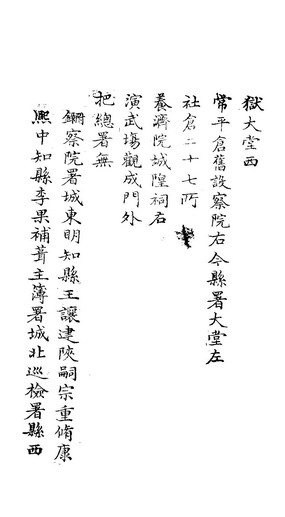 獄大堂西
常平倉舊設察院右今縣署大堂左
社倉二十七所
養濟院城隍祠右
演武場觀成門外
把總署無
察院署城東明知縣王讓建陝嗣宗重脩康
熙中知縣李果補葺主簿署城北巡檢署縣西